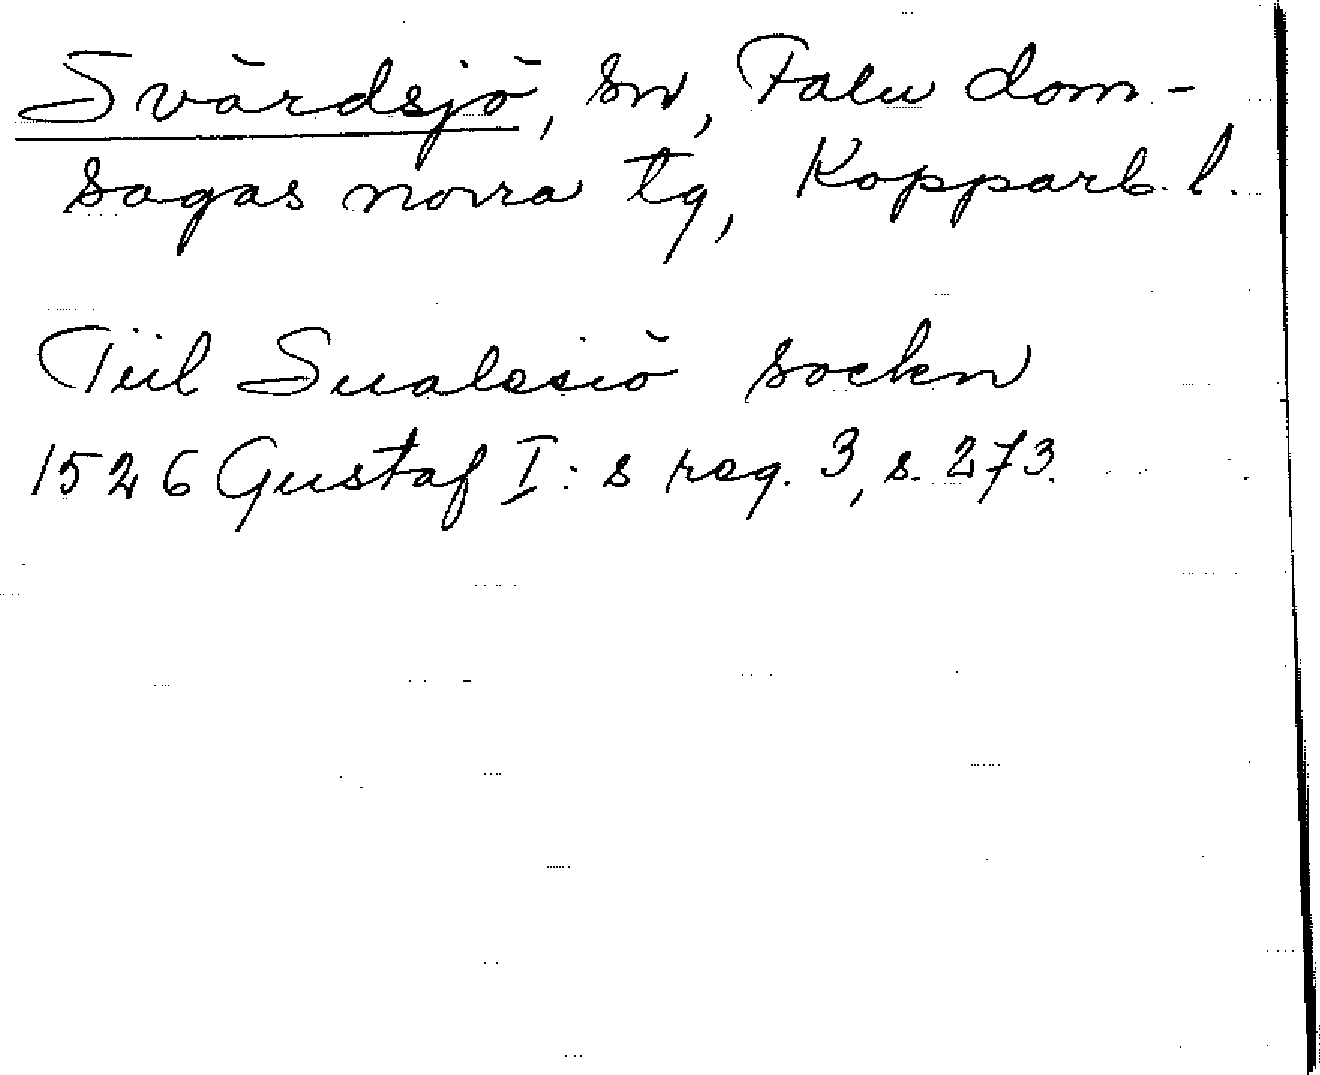 Svärdsjö, sn, Falu dom-
sagas norra tg, Kopparb. l.
Tiil Sualesiö sockn
1526 Gustaf I:s reg. 3, s. 273.